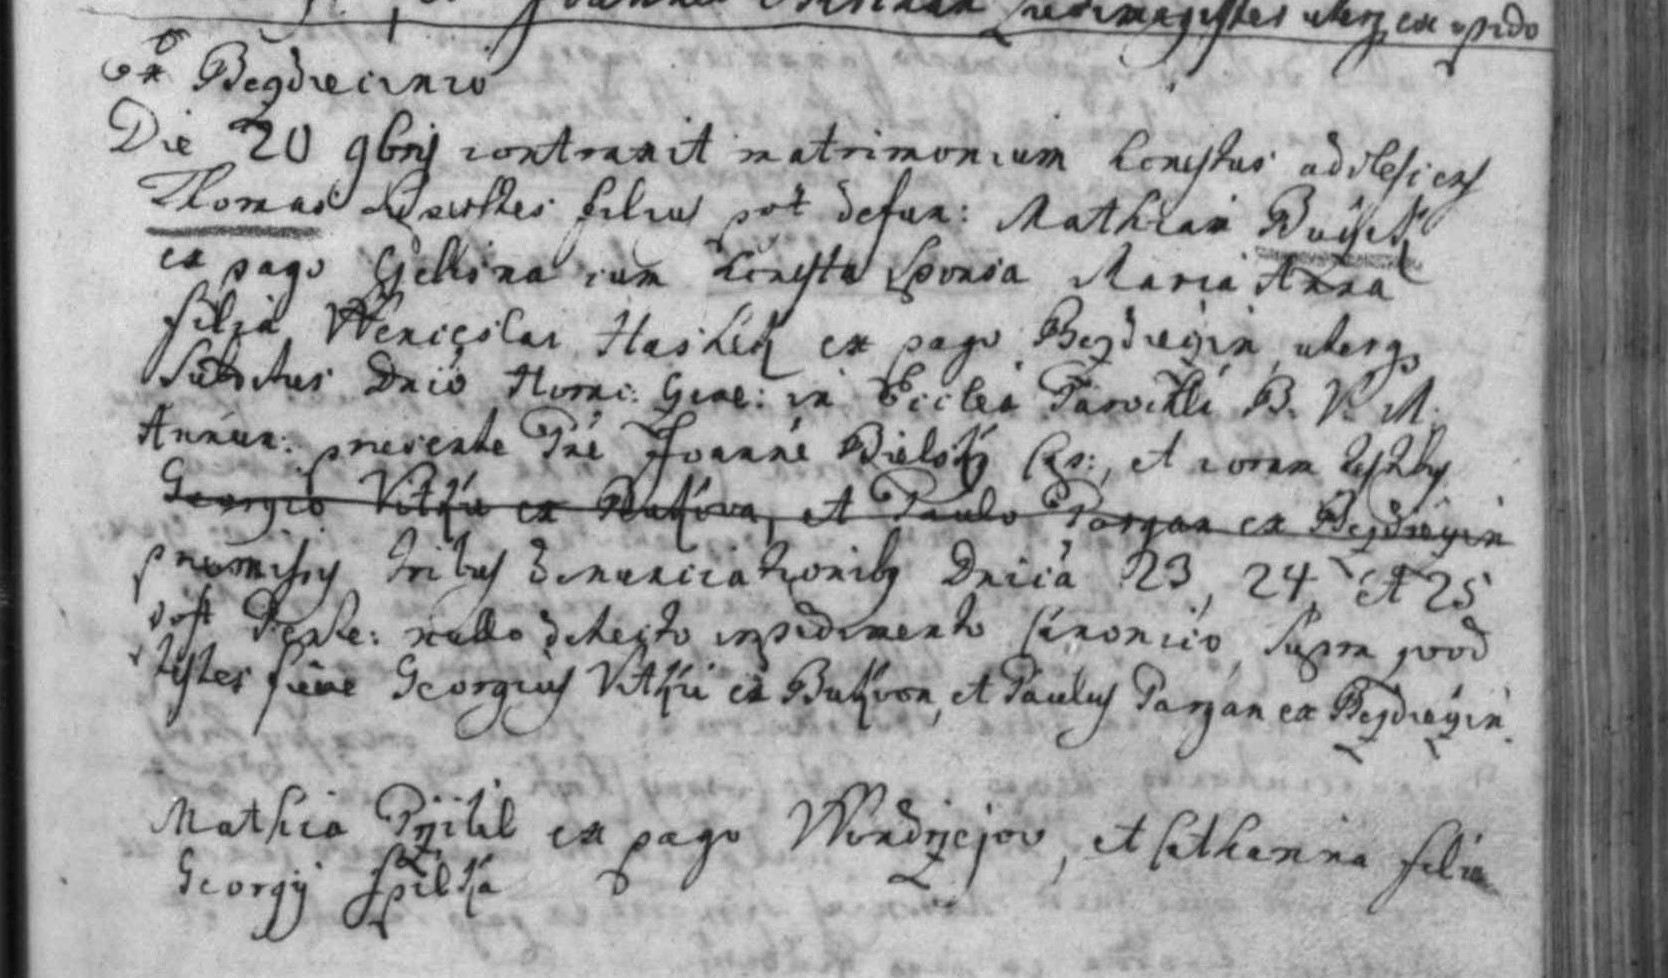 Joannes Ludimagister uterq ex opido
Ex Bezdiecinio
Die 20 9bris contraxit matrimonium honestus adolescens
Thomas filius post defun: Mathiam
ex pago Gelhina cum honesta sponsa Maria Anna
filia Wenceslai Haskek ex pago Bezdieyin uterq
Subditus Dnio Horac: Gine: in Ecclea Parochli B. V. M.
Annun: presente Pre Joanne Bielsky Cap:, et coram testibus
Georgio Vitku ex Bukova, et Paulo Parzan ex Bezdieyin
premissis tribus denunciationibq Dnica 23, 24, et 25
post Pente: nullo detecto impedimento Canonico, supra quod
testes fuere Georgius Vitku ex Bukova, et Paulus Parzan ex Bezdieyin.
Mathia Pržibil ex pago Wondrzejov, et Catharina filia
Georgy Spilka